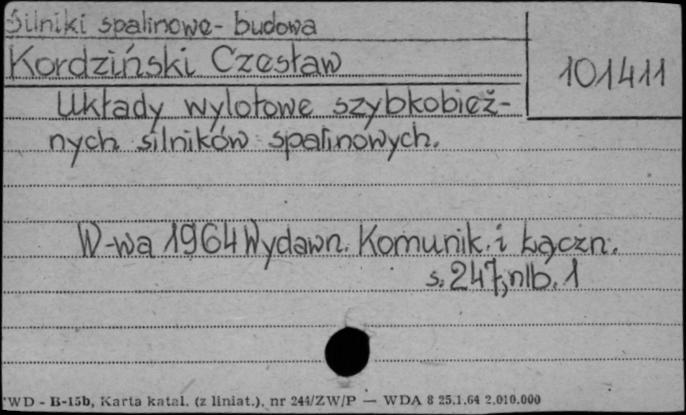 Silniki spalinowe - budowa
Kordziński Czesław
101411
Układy wylotowe szybkobież-
nych silników spalinowych.
W-wa 1964 Wydawn. Komunik. i Łączn.
s. 247, nlb. 1
WD - B-15b, Karta katal. (z liniat.), nr 244/ZW/P — WDA 8 25.1.64 2.010.000